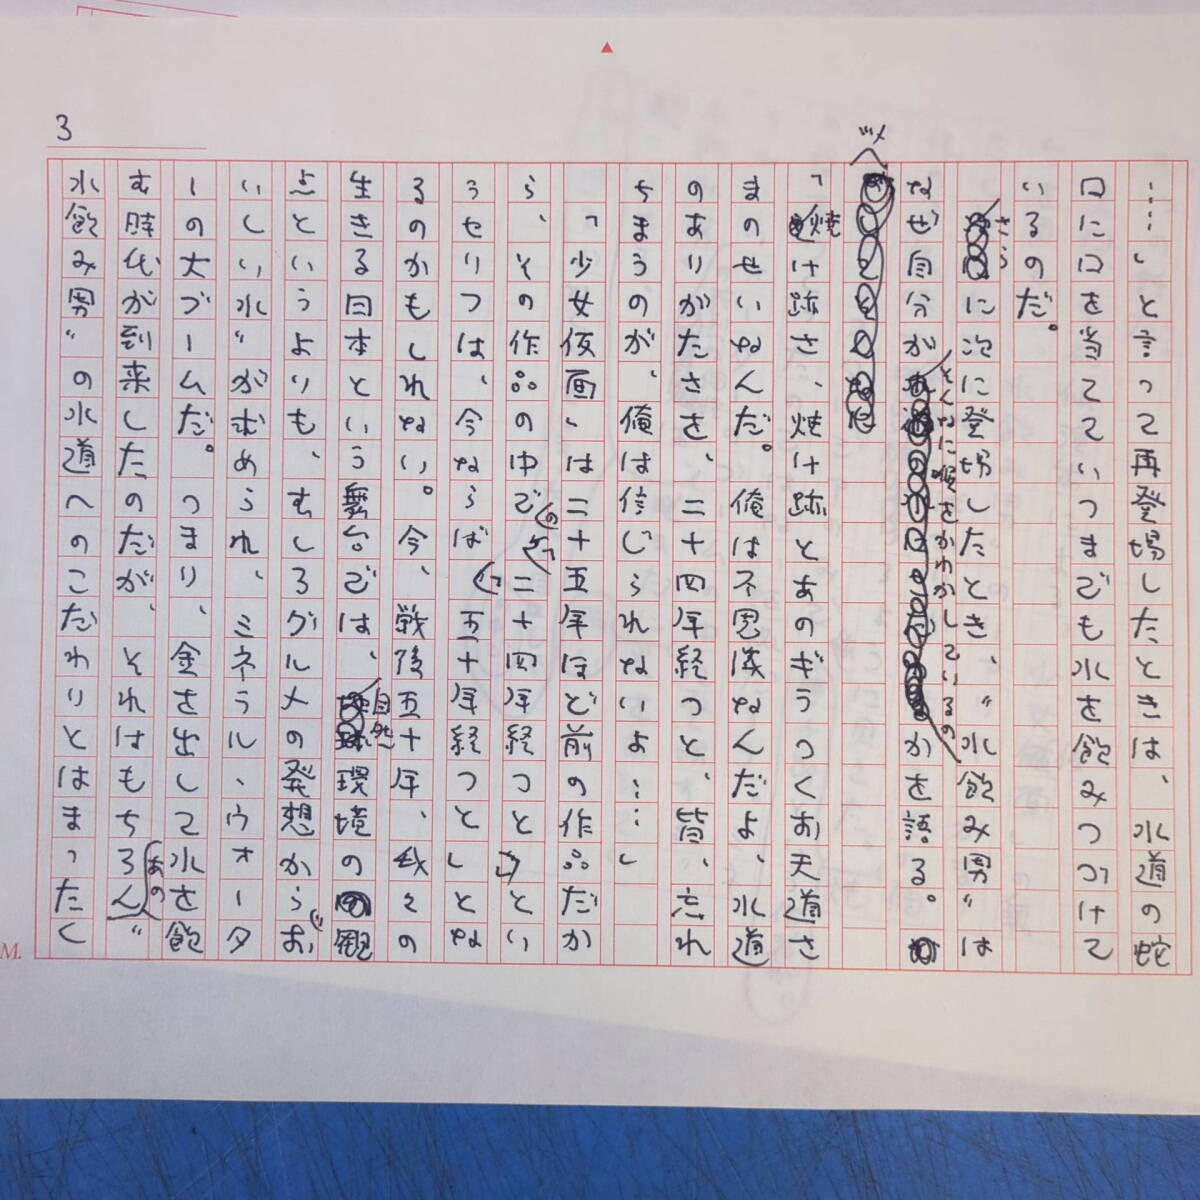 3
……」と言って再登場したときは、水道の蛇
口に口を当てていつまでも水を飲みつづけて
いるのだ。
さらに次に登場したとき、“水飲み男”は
なぜ自分がそんなに喉をかわかしているのかを語る。
ツメ
「焼け跡さ、焼け跡とあのギラつくお天道さ
まのせいなんだ。俺は不思議なんだよ、水道
のありがたささえ、二十四年経つと、皆、忘れ
ちまうのが、俺は信じられないよ……」
「少女仮面」は二十五年ほど前の作品だか
ら、その作品の中での“二十四年経つと”とい
うセリフは、今ならば“五十年経つと”とな
るのかもしれない。今、戦後五十年、我々の
生きる日本という舞台では、自然環境の観
点というよりも、むしろグルメの発想から“お
いしい水”が求められ、ミネラル・ウォータ
ーの大ブームだ。つまり、金を出して水を飲
む時代が到来したのだが、それはもちろんあの“
水飲み男”の水道へのこだわりとはまったく
M.